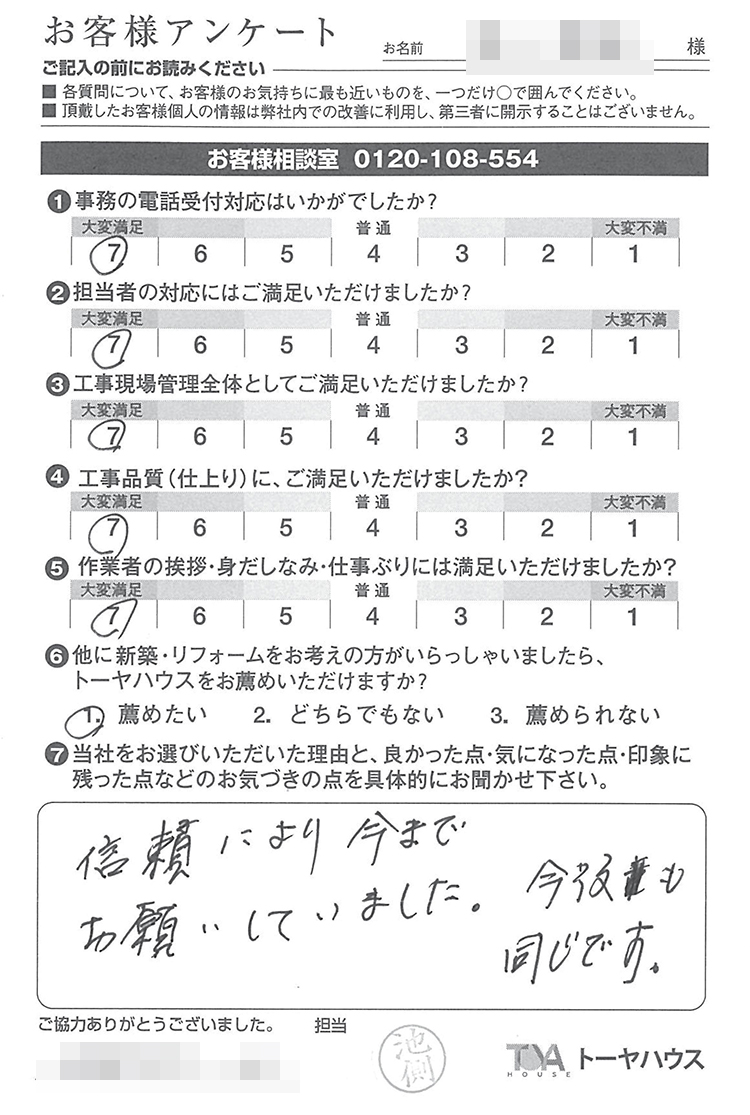 お客様アンケート
お名前 様
ご記入の前にお読みください
■ 各質問について、お客様のお気持ちに最も近いものを、一つだけ○で囲んでください。
■ 頂戴したお客様個人の情報は弊社内での改善に利用し、第三者に開示することはございません。
お客様相談室 0120-108-554
❶ 事務の電話受付対応はいかがでしたか?
大変満足 普通 大変不満
7 6 5 4 3 2 1
❷ 担当者の対応にはご満足いただけましたか?
大変満足 普通 大変不満
7 6 5 4 3 2 1
❸ 工事現場管理全体としてご満足いただけましたか?
大変満足 普通 大変不満
7 6 5 4 3 2 1
❹ 工事品質(仕上り)に、ご満足いただけましたか?
大変満足 普通 大変不満
7 6 5 4 3 2 1
❺ 作業者の挨拶・身だしなみ・仕事ぶりには満足いただけましたか?
大変満足 普通 大変不満
7 6 5 4 3 2 1
❻ 他に新築・リフォームをお考えの方がいらっしゃいましたら、
トーヤハウスをお薦めいただけますか?
1. 薦めたい 2. どちらでもない 3. 薦められない
❼ 当社をお選びいただいた理由と、良かった点・気になった点・印象に
残った点などのお気づきの点を具体的にお聞かせ下さい。
信頼により今まで
お願いしていました。
今後も
同じです。
ご協力ありがとうございました。 担当 池側
TOYA HOUSE トーヤハウス